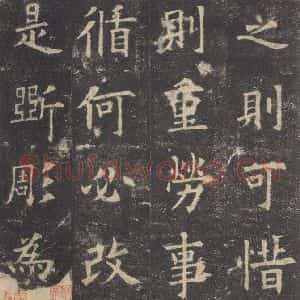 之則可惜
則重勞事
循何必改
是斲彫為